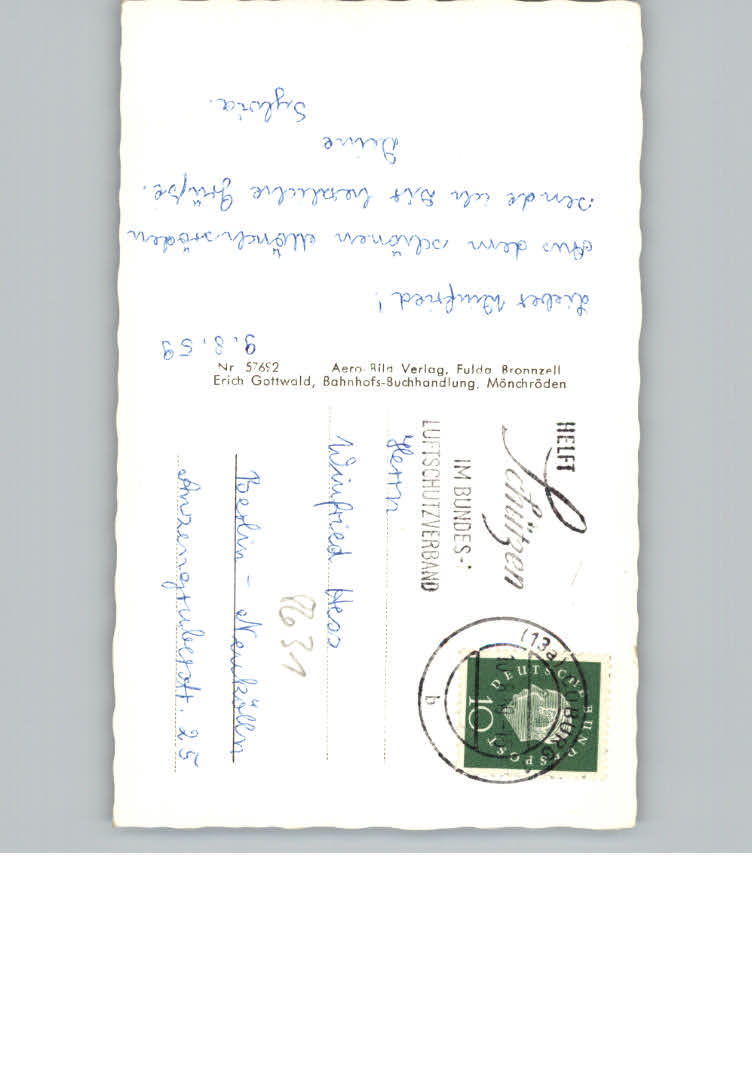 9.8.59
Lieber Winfried!
Aus dem schönen Mönchröden
sende ich Dir herzliche Grüße.
Deine
Sylvia.
Nr 57692 Aero-Bild Verlag, Fulda Bronnzell
Erich Gottwald, Bahnhofs-Buchhandlung, Mönchröden
HELFT
Schützen
IM BUNDES-
LUFTSCHUTZVERBAND
(13a) COBURG
b
DEUTSCHE BUNDESPOST
10
Herrn
Winfried Hess
Berlin - Neukölln
25